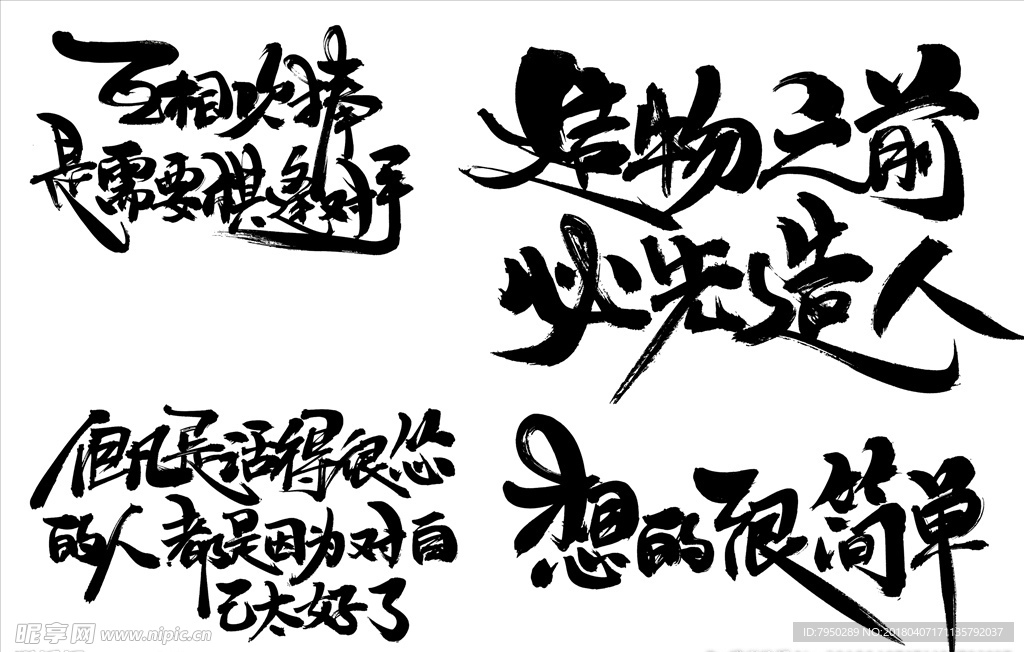 互相吹捧
是需要棋逢对手
造物之前
必先造人
但凡是活得很怂
的人都是因为对自
己太好了
想的很简单
昵享网 www.nipic.cn
ID:7950289 NO:20180407171135792037